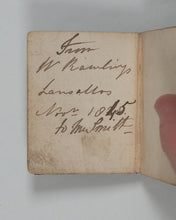 From
W Rawlings
Lansallos
Novr. 1845
to Mr Smith